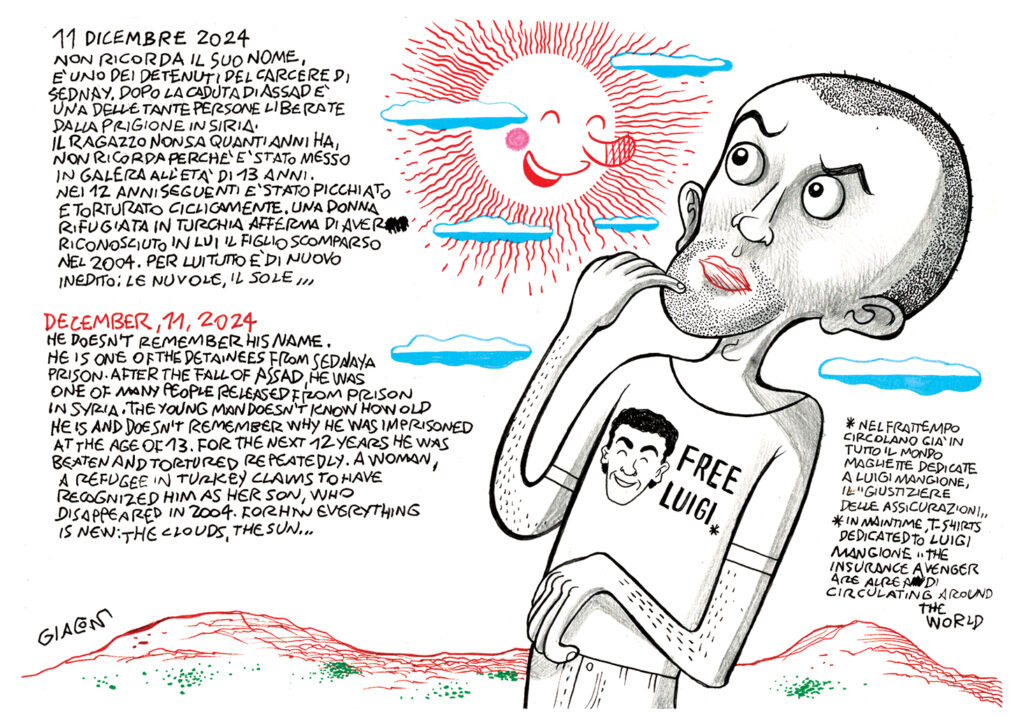 11 DICEMBRE 2024
NON RICORDA IL SUO NOME,
E' UNO DEI DETENUTI DEL CARCERE DI
SEDNAY, DOPO LA CADUTA DI ASSAD E'
UNA DELLE TANTE PERSONE LIBERATE
DALLA PRIGIONE IN SIRIA.
IL RAGAZZO NON SA QUANTI ANNI HA,
NON RICORDA PERCHE' E' STATO MESSO
IN GALERA ALL'ETA' DI 13 ANNI.
NEI 12 ANNI SEGUENTI E' STATO PICCHIATO
E TORTURATO CICLICAMENTE. UNA DONNA
RIFUGIATA IN TURCHIA AFFERMA DI AVER
RICONOSCIUTO IN LUI IL FIGLIO SCOMPARSO
NEL 2004. PER LUI TUTTO E' DI NUOVO
INEDITO: LE NUVOLE, IL SOLE...
DECEMBER, 11, 2024
HE DOESN'T REMEMBER HIS NAME.
HE IS ONE OF THE DETAINEES FROM SEDNAYA
PRISON. AFTER THE FALL OF ASSAD, HE WAS
ONE OF MANY PEOPLE RELEASED FROM PRISON
IN SYRIA. THE YOUNG MAN DOESN'T KNOW HOW OLD
HE IS AND DOESN'T REMEMBER WHY HE WAS IMPRISONED
AT THE AGE OF 13. FOR THE NEXT 12 YEARS HE WAS
BEATEN AND TORTURED REPEATEDLY. A WOMAN,
A REFUGEE IN TURKEY CLAIMS TO HAVE
RECOGNIZED HIM AS HER SON, WHO
DISAPPEARED IN 2004. FOR HIM EVERYTHING
IS NEW: THE CLOUDS, THE SUN...
FREE
LUIGI*
* NEL FRATTEMPO
CIRCOLANO GIA' IN
TUTTO IL MONDO
MAGLIETTE DEDICATE
A LUIGI MANGIONE,
IL "GIUSTIZIERE
DELLE ASSICURAZIONI"
* IN MAINTIME, T-SHIRTS
DEDICATED TO LUIGI
MANGIONE "THE
INSURANCE AVENGER
ARE ALREADI
CIRCULATING AROUND
THE
WORLD
GIACON